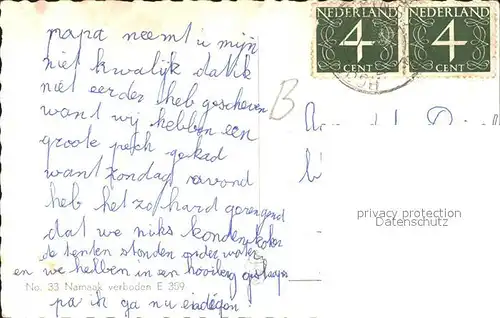 papa neemt u mijn
niet kwalijk dat ik
niet eerder heb geschreven
want wij hebben een
groote pech gehad
want zondag avond
heb het zo hard geregend
dat we niks konden koken
de tenten stonden onder water
en we hebben in een hooiberg geslapen
No. 33 Namaak verboden E 309
pa ik ga nu eindigen
NEDERLAND
4
CENT
NEDERLAND
4
CENT
B
privacy protection
Datenschutz